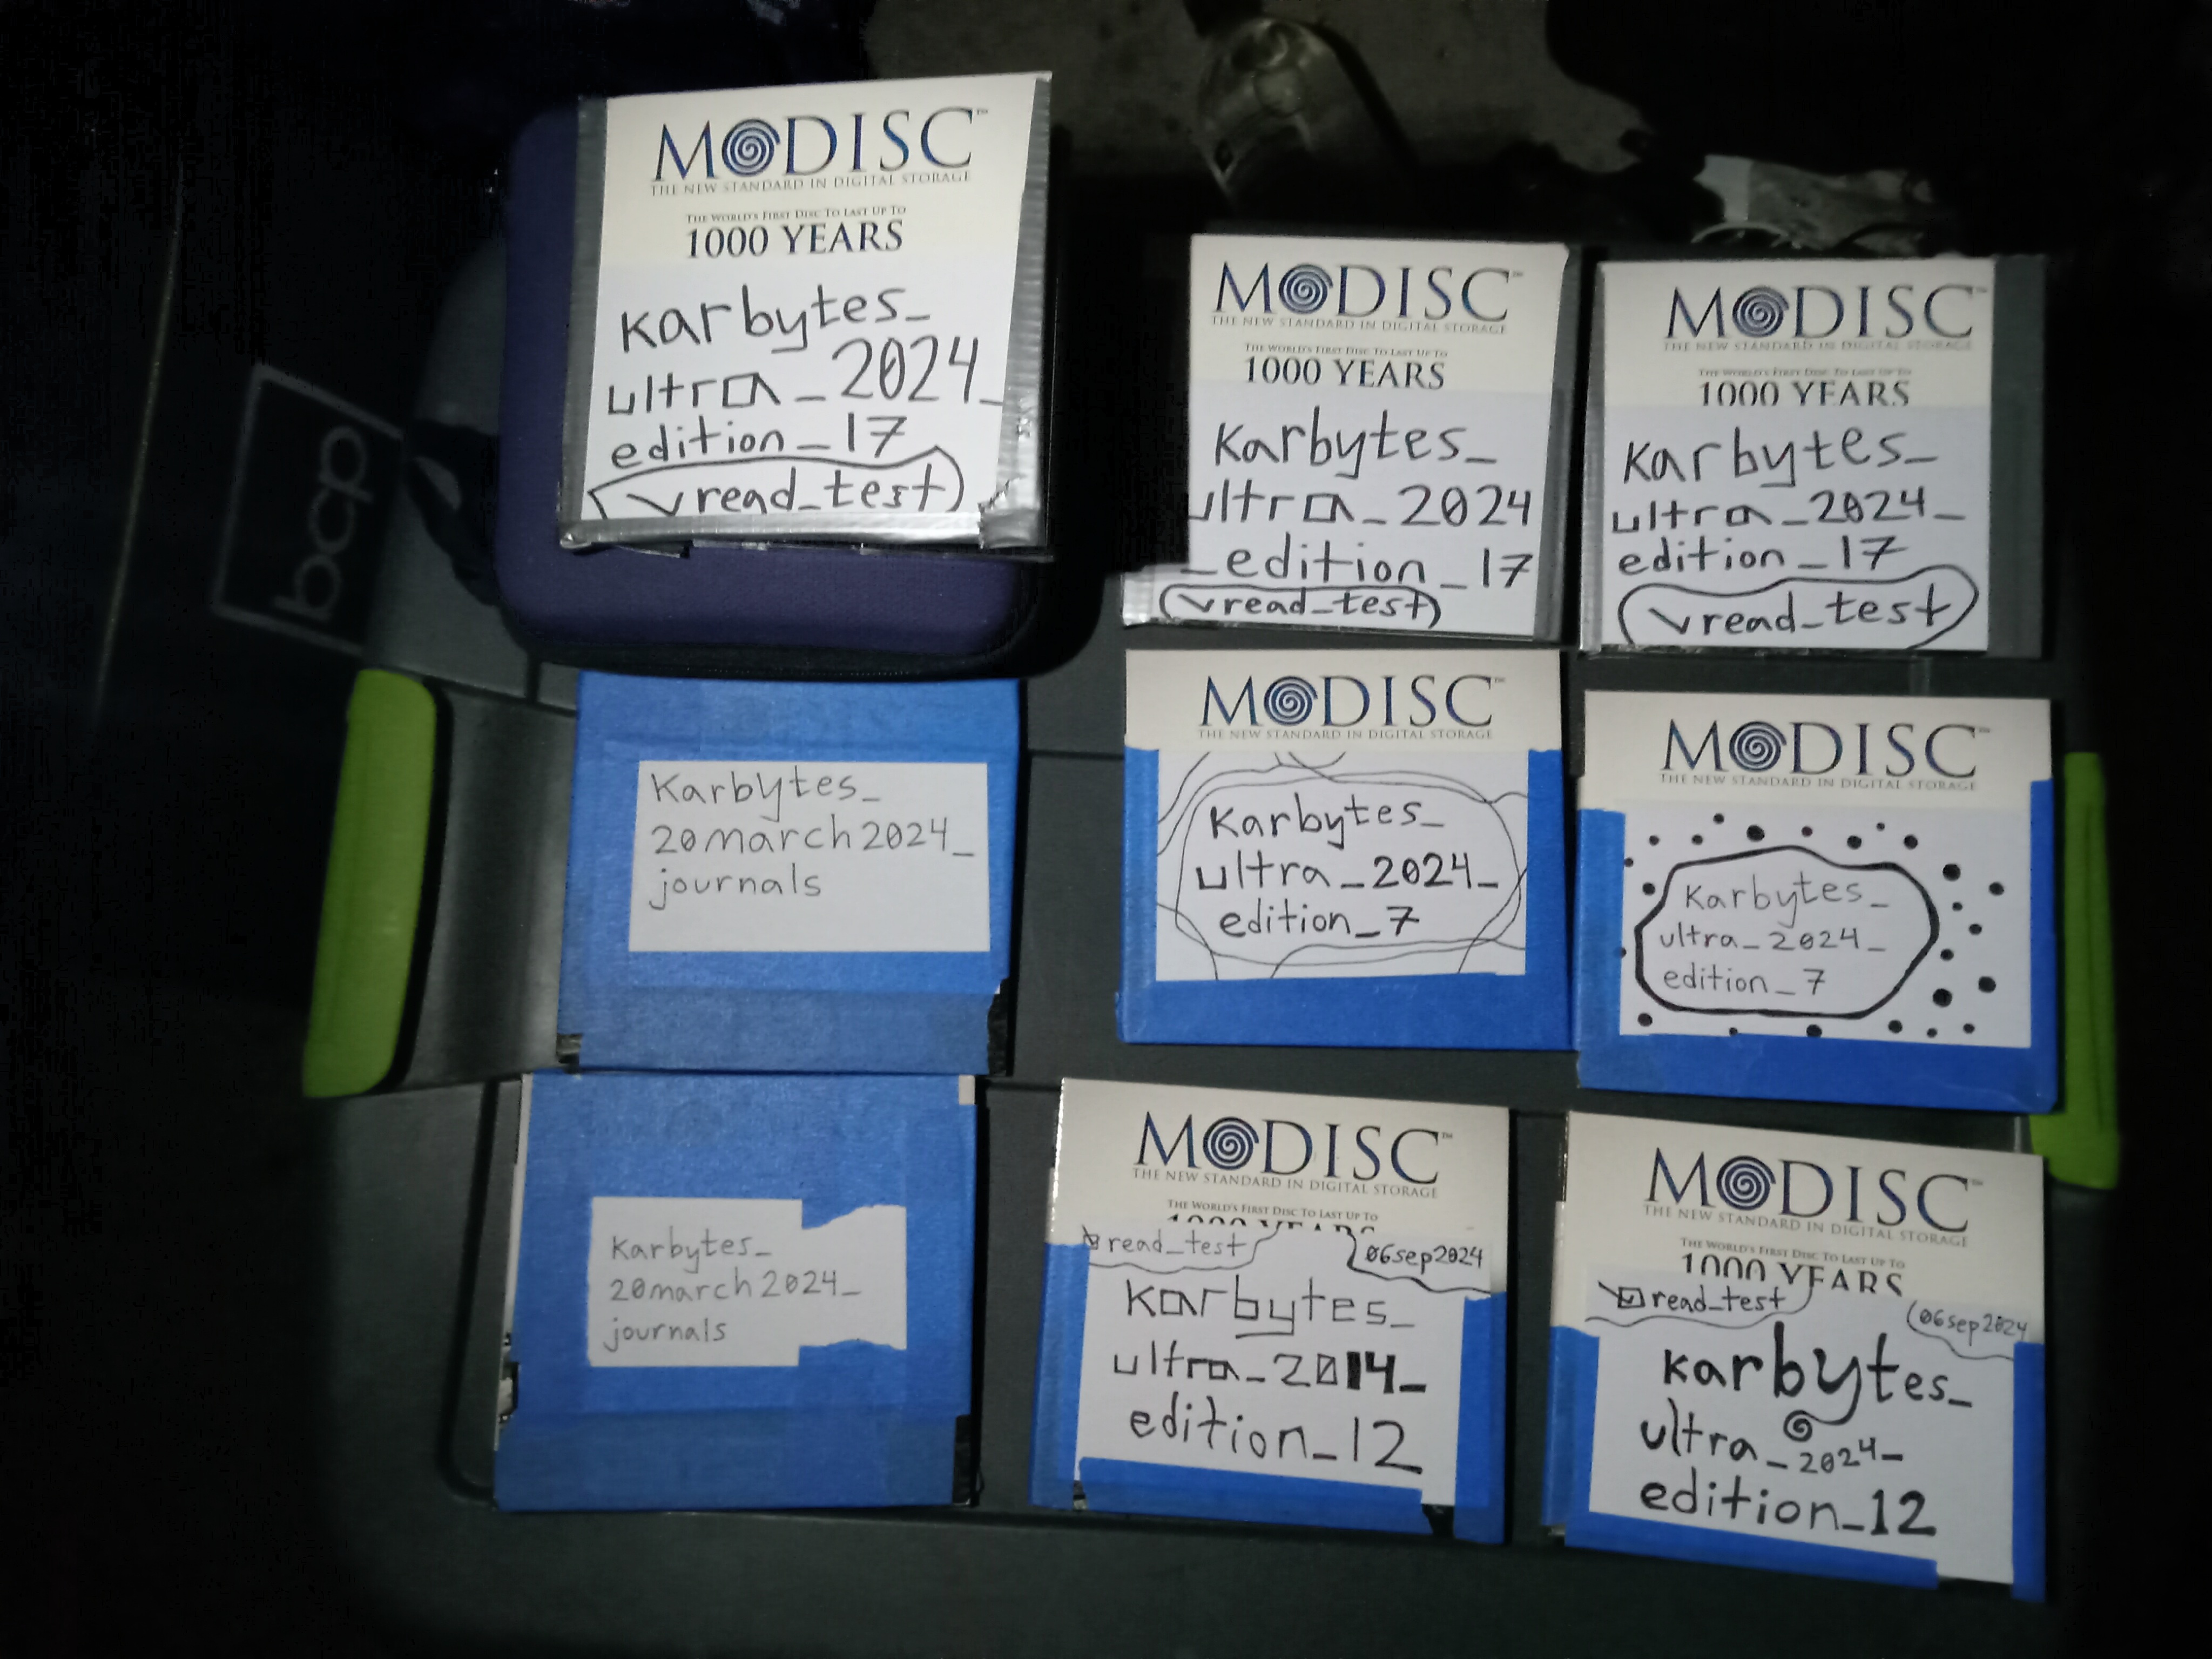 MODISC™
THE NEW STANDARD IN DIGITAL STORAGE
THE WORLD'S FIRST DISC TO LAST UP TO
1000 YEARS
karbytes_
ultra_2024_
edition_17
✓read_test
MODISC™
THE NEW STANDARD IN DIGITAL STORAGE
THE WORLD'S FIRST DISC TO LAST UP TO
1000 YEARS
karbytes_
ultra_2024
_edition_17
✓read_test
MODISC™
THE NEW STANDARD IN DIGITAL STORAGE
THE WORLD'S FIRST DISC TO LAST UP TO
1000 YEARS
karbytes_
ultra_2024_
edition_17
✓read_test
bcp
karbytes_
20march2024_
journals
MODISC™
THE NEW STANDARD IN DIGITAL STORAGE
karbytes_
ultra_2024_
edition_7
MODISC™
THE NEW STANDARD IN DIGITAL STORAGE
karbytes_
ultra_2024_
edition_7
karbytes_
20march2024_
journals
MODISC™
THE NEW STANDARD IN DIGITAL STORAGE
THE WORLD'S FIRST DISC TO LAST UP TO
1000 YEARS
☑read_test
06sep2024
karbytes_
ultra_2014_
edition_12
MODISC™
THE NEW STANDARD IN DIGITAL STORAGE
THE WORLD'S FIRST DISC TO LAST UP TO
1000 YEARS
☑read_test
06sep2024
karbytes_
ultra_2024_
edition_12